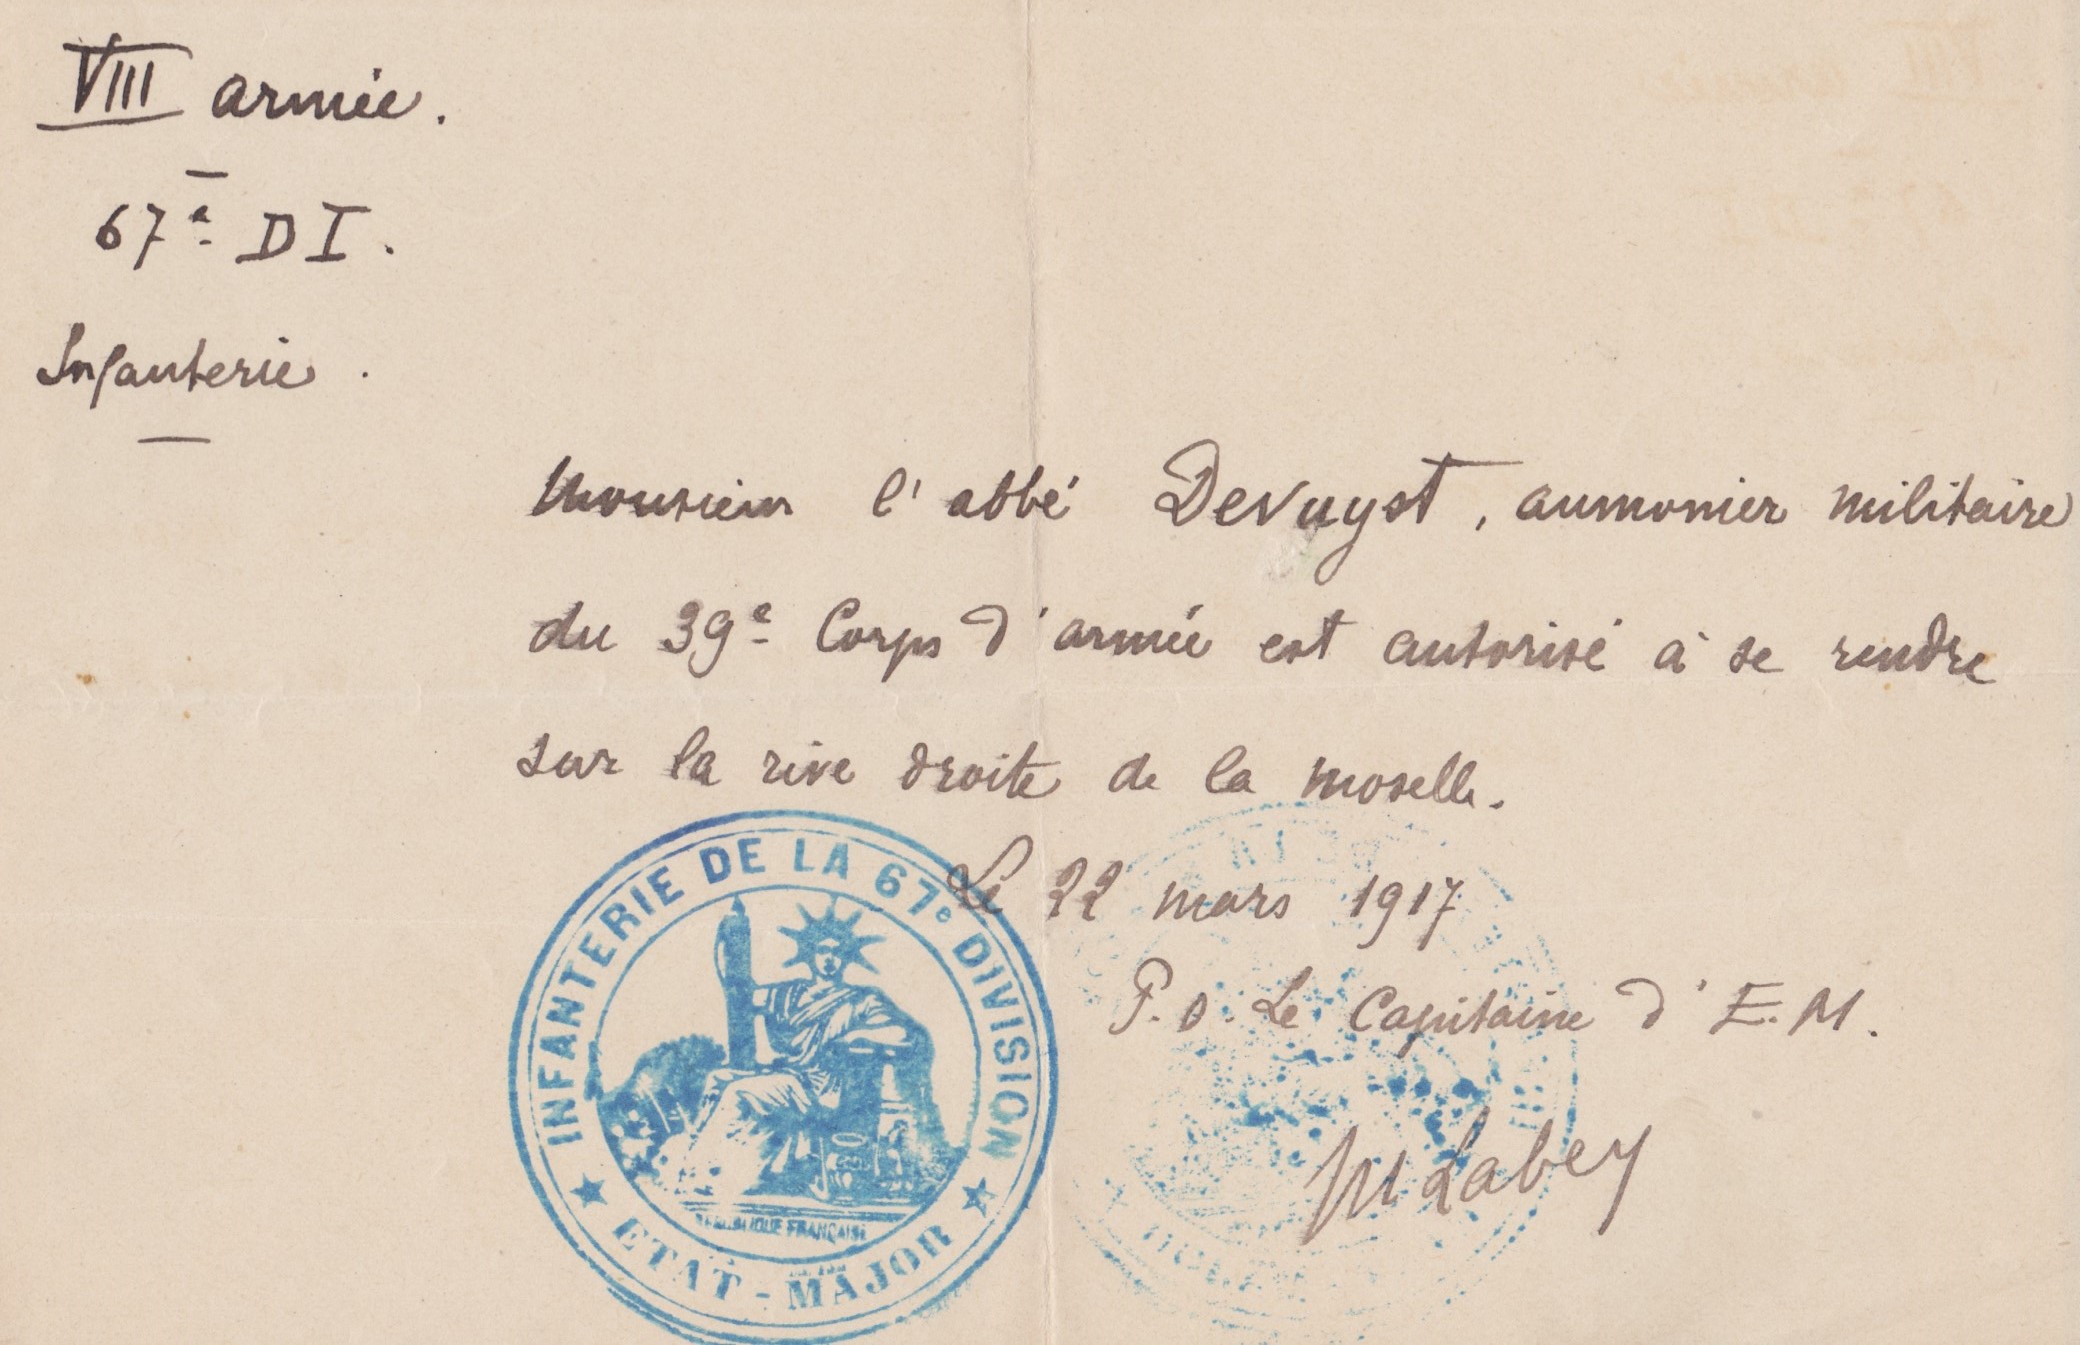 VIII armée.
67e DI.
Infanterie.
Monsieur l'abbé Devuyst, aumonier militaire
du 39e Corps d'armée est autorisé à se rendre
sur la rive droite de la Moselle.
Le 22 mars 1917
P.O. Le Capitaine d'E.M.
M Labey
INFANTERIE DE LA 67e DIVISION
REPUBLIQUE FRANÇAISE
ETAT-MAJOR